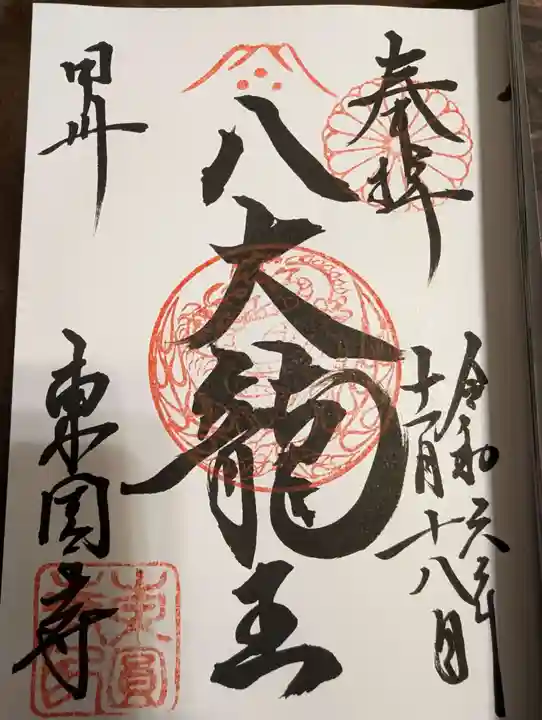 奉拝
令和六年
十一月十八日
八大龍王
甲州
東圓寺